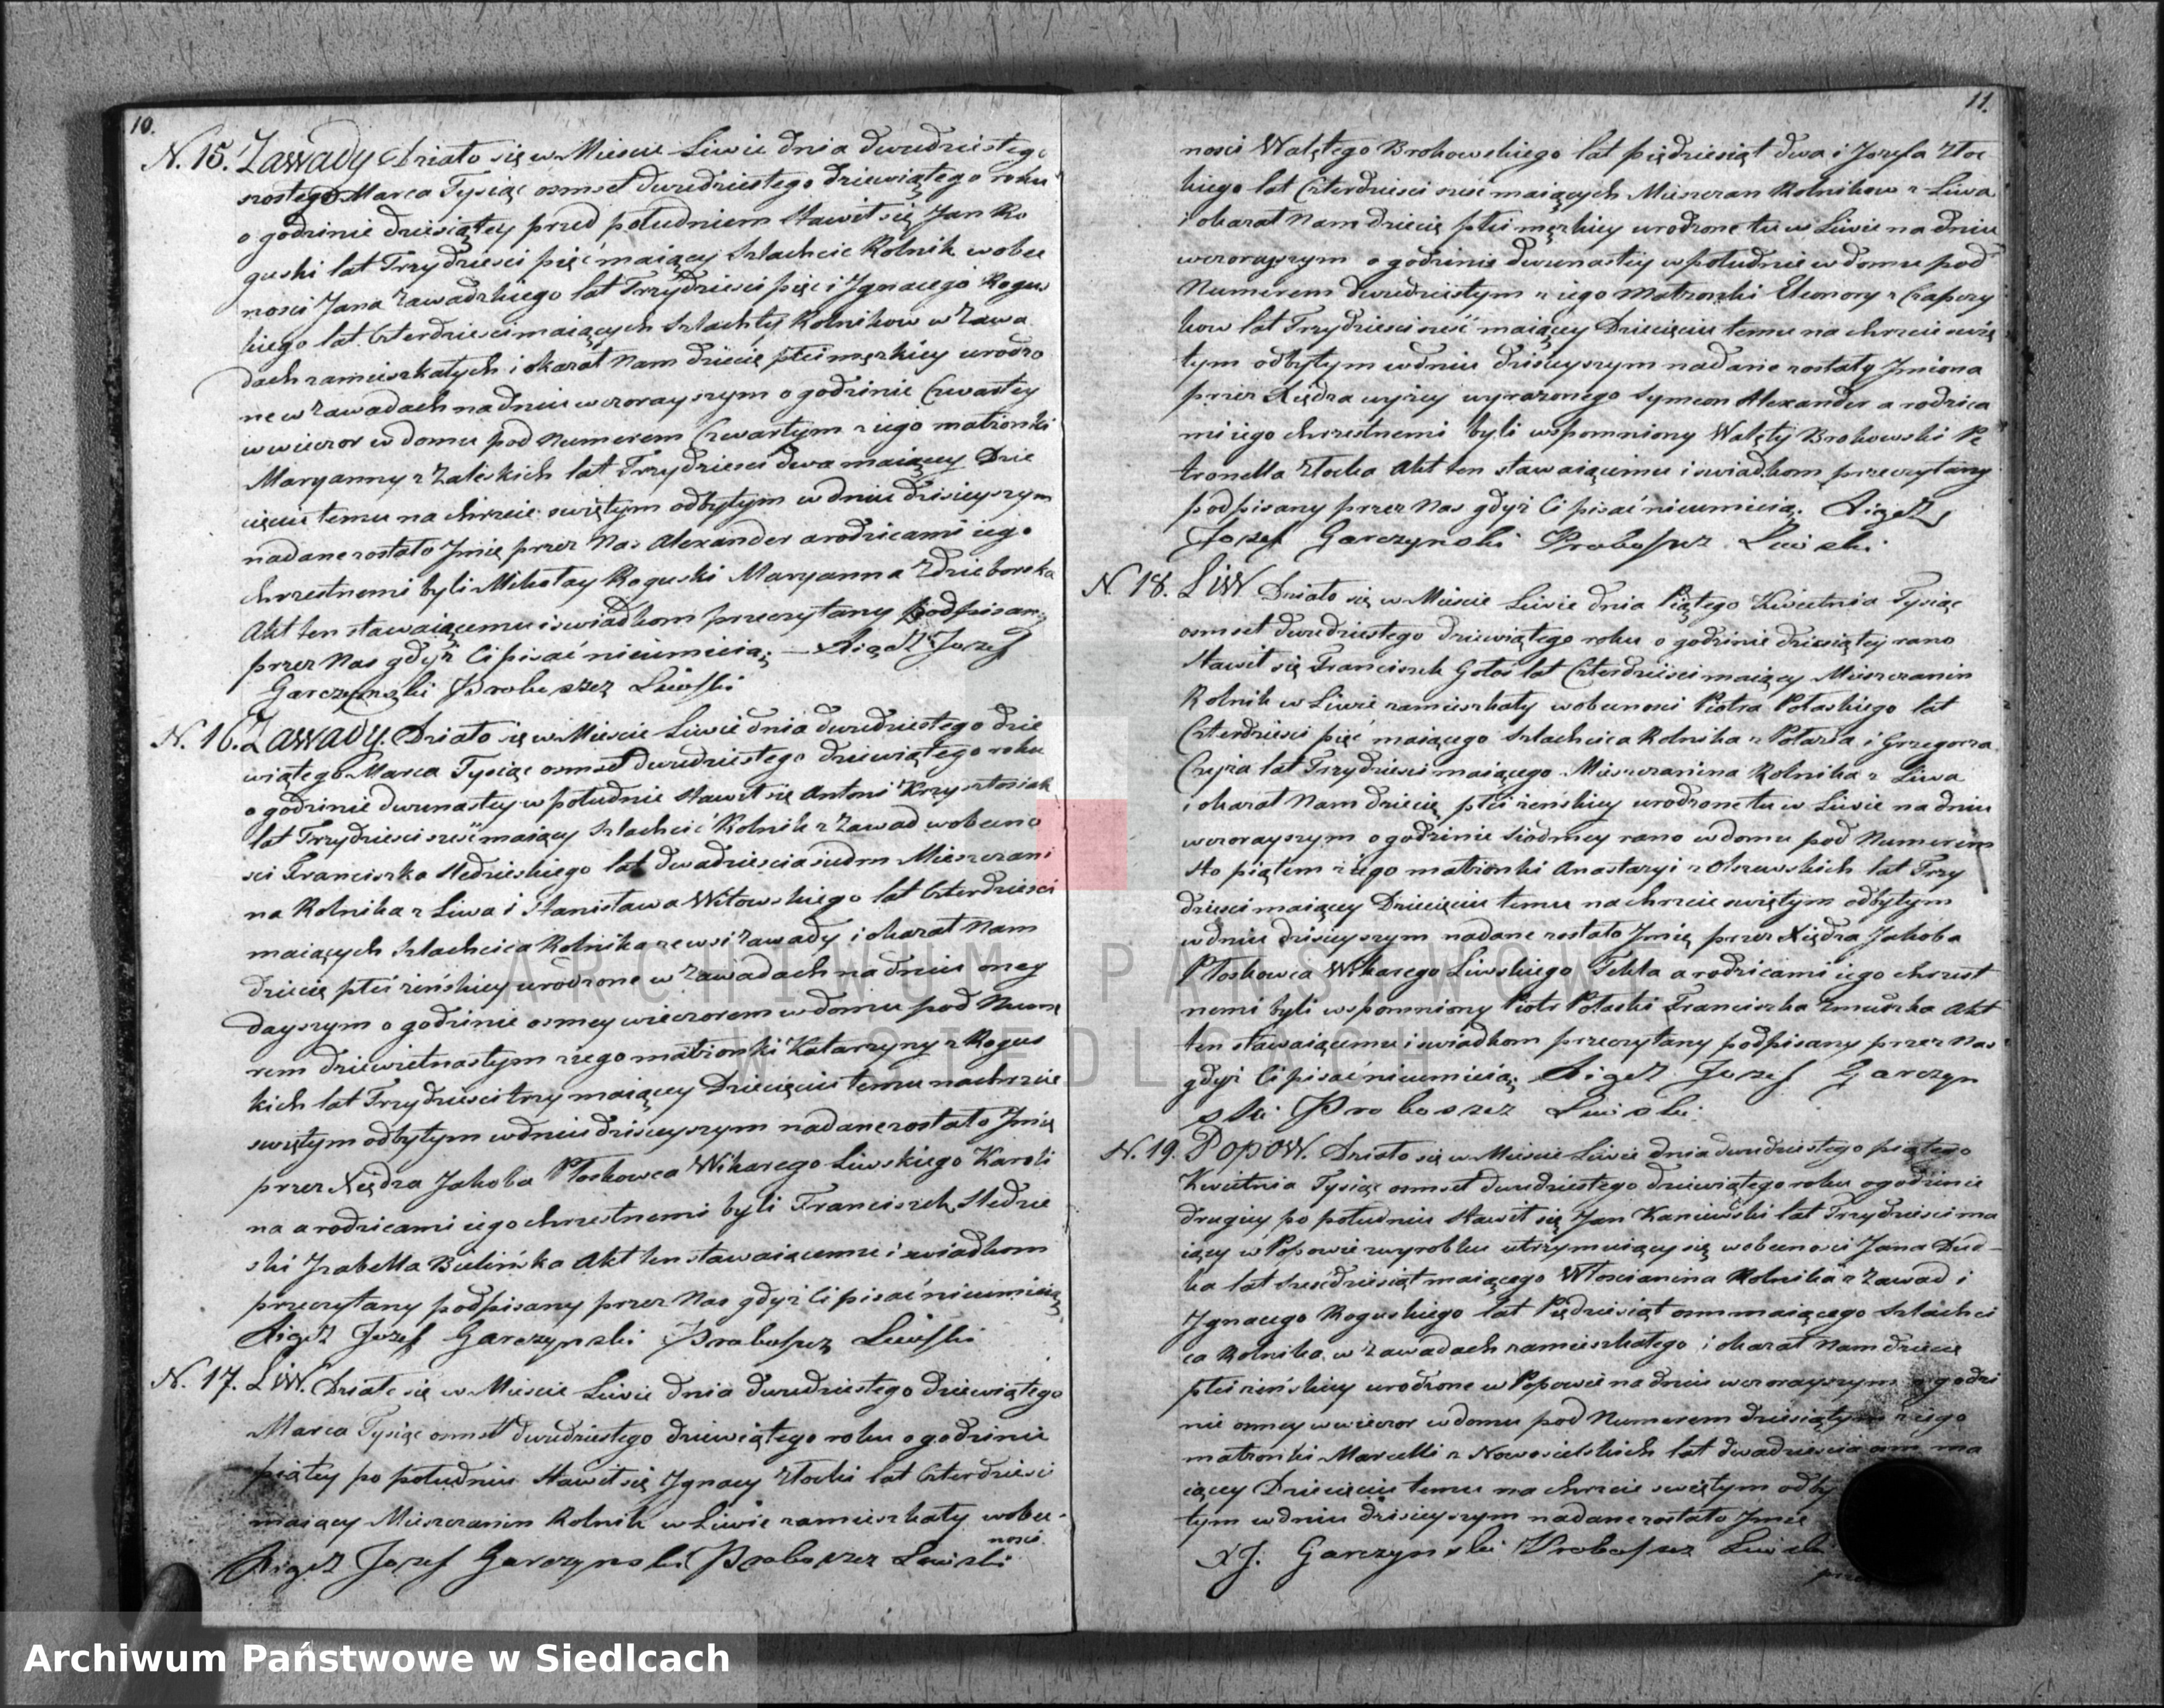 10.
N. 15. Zawady Działo się w Mieście Liwie dnia dwudziestego
szostego Marca Tysiąc osmset dwudziestego dziewiątego roku
o godzinie dziesiątey przed południem stawił się Jan Ro
guski lat Trzydzieści pięć maiący Szlachcic Rolnik w obec
ności Jana Zawadzkiego lat Trzydzieści pięć i Ignacego Rogus
kiego lat Czterdzieści maiących Szlachty Rolnikow w Zawa
dach zamieszkałych i okazał Nam dziecię płci męzkiey urodzo
ne w Zawadach na dniu wczorayszym o godzinie Czwartey
w wieczor w domu pod Numerem Czwartym z iego małzonki
Maryanny z Zaleskich lat Trzydzieści dwa maiącey Dzie
cięciu temu na chrzcie swiętym odbytym w dniu dzisieyszym
nadane zostało Jmię przez Nas Alexander a rodzicami iego
chrzestnemi byli Mikołay Roguski Maryanna Zdzieborska
Akt ten stawaiącemu i swiadkom przeczytany podpisany
przez Nas gdyż Ci pisać nieumieią; — Xiądz Jozef
Garczynski Proboszcz Liwski
N. 16. Zawady. Działo się w Mieście Liwie dnia dwudziestego dzie
wiątego Marca Tysiąc osmset dwudziestego dziewiątego roku
o godzinie dwunastey w południe stawił się Antoni Krzysztosiak
lat Trzydzieści szesć maiący Szlachcic Rolnik z Zawad w obecno
sci Franciszka Sledzieskiego lat dwadzieścia siedm Mieszczani
na Rolnika z Liwa i Stanisława Witowskiego lat Czterdzieści
maiących Szlachcica Rolnika ze wsi Zawady i okazał Nam
dziecię płci zeńskiey urodzone w Zawadach na dniu oneg
dayszym o godzinie osmey wieczorem w domu pod Nume
rem dziewietnastym z iego małzonki Katarzyny z Rogus
kich lat Trzydzieści trzy maiącey Dziecięciu temu na chrzcie
swiętym odbytym w dniu dzisieyszym nadane zostało Jmię
przez Xiędza Jakoba Płoskowca Wikarego Liwskiego Karoli
na a rodzicami iego chrzestnemi byli Franciszek Sledzie
ski Izabella Bielińska Akt ten stawaiącemu i swiadkom
przeczytany podpisany przez Nas gdyż Ci pisać nieumieią
Xiądz Jozef Garczynski Proboszcz Liwski
N. 17. Liw. Działo się w Mieście Liwie dnia dwudziestego dziewiątego
Marca Tysiąc osmset dwudziestego dziewiątego roku o godzinie
piątey po południu stawił się Ignacy Złocki lat Czterdzieści
maiący Mieszczanin Rolnik w Liwie zamieszkały w obec-
ności
Xiądz Jozef Garczynski Proboszcz Liwski
11.
ności Walętego Brokowskiego lat pięдziesiąt dwa i Jozefa Złoc
kiego lat Czterdzieści szesć maiących Mieszczan Rolnikow z Liwa
i okazał Nam dziecię płci męzkiey urodzone tu w Liwie na dniu
wczorayszym o godzinie dwunastey w południe w domu pod
Numerem dwudziestym z iego Małzonki Eleonory z Czapczy
kow lat Trzydzieści szesć maiącey Dziecięciu temu na chrzcie swię
tym odbytym w dniu dzisieyszym nadane zostały Jmiona
przez Xiędza wyżey wyrazonego Symeon Alexander a rodzica
mi iego chrzestnemi byli wspomniony Walęty Brokowski Pe
tronella Złocka Akt ten stawaiącemu i swiadkom przeczytany
podpisany przez Nas gdyż Ci pisać nieumieią. Xiądz
Jozef Garczynski Proboszcz Liwski
N 18. Liw Działo się w Mieście Liwie dnia Piątego Kwietnia Tysiąc
osmset dwudziestego dziewiątego roku o godzinie dziesiątey rano
stawił się Franciszek Gołos lat Czterdzieści maiący Mieszczanin
Rolnik w Liwie zamieszkały w obecności Piotra Połaskiego lat
Czterdzieści pięć maiącego Szlachcica Rolnika z Połazia i Grzegorza
Czyża lat Trzydzieści maiącego Mieszczanina Rolnika z Liwa
i okazał Nam dziecię płci zeńskiey urodzone tu w Liwie na dniu
wczorayszym o godzinie siodmey rano w domu pod Numerem
sto piątem z iego małzonki Anastazyi z Olszewskich lat Trzy
dzieści maiącey Dziecięciu temu na chrzcie swiętym odbytym
w dniu dzisieyszym nadane zostało Jmię przez Xiędza Jakoba
Płoskowca Wikarego Liwskiego Tekla a rodzicami iego chrzest
nemi byli wspomniony Piotr Połaski Franciszka Zmudzka Akt
ten stawaiącemu i swiadkom przeczytany podpisany przez Nas
gdyż Ci pisać nieumieią; Xiądz Jozef Garczyn
ski Proboszcz Liwski
N. 19. Popow. Działo się w Mieście Liwie dnia dwudziestego piątego
Kwietnia Tysiąc osmset dwudziestego dziewiątego roku o godzinie
drugiey po południu stawił się Jan Kaniewski lat Trzydzieści ma
iący w Popowie z wyrobku utrzymuiący się w obecności Jana Dud-
ka lat szesćdziesiąt maiącego Włoscianina Rolnika z Zawad i
Ignacego Roguskiego lat Pięдziesiąt osm maiącego Szlachci
ca Rolnika w Zawadach zamieszkałego i okazał Nam dziecię
płci zeńskiey urodzone w Popowie na dniu wczorayszym o godzi
nie osmey w wieczor w domu pod Numerem dziesiątym z iego
małzonki Marcelli z Nowosielskich lat dwadzieścia osm ma
iącey Dziecięciu temu na chrzcie swiętym odby
tym w dniu dzisieyszym nadane zostało Jmie
XJ. Garczynski Proboszcz Liwski
ARCHIWUM PAŃSTWOWE
W SIEDLCACH
Archiwum Państwowe w Siedlcach